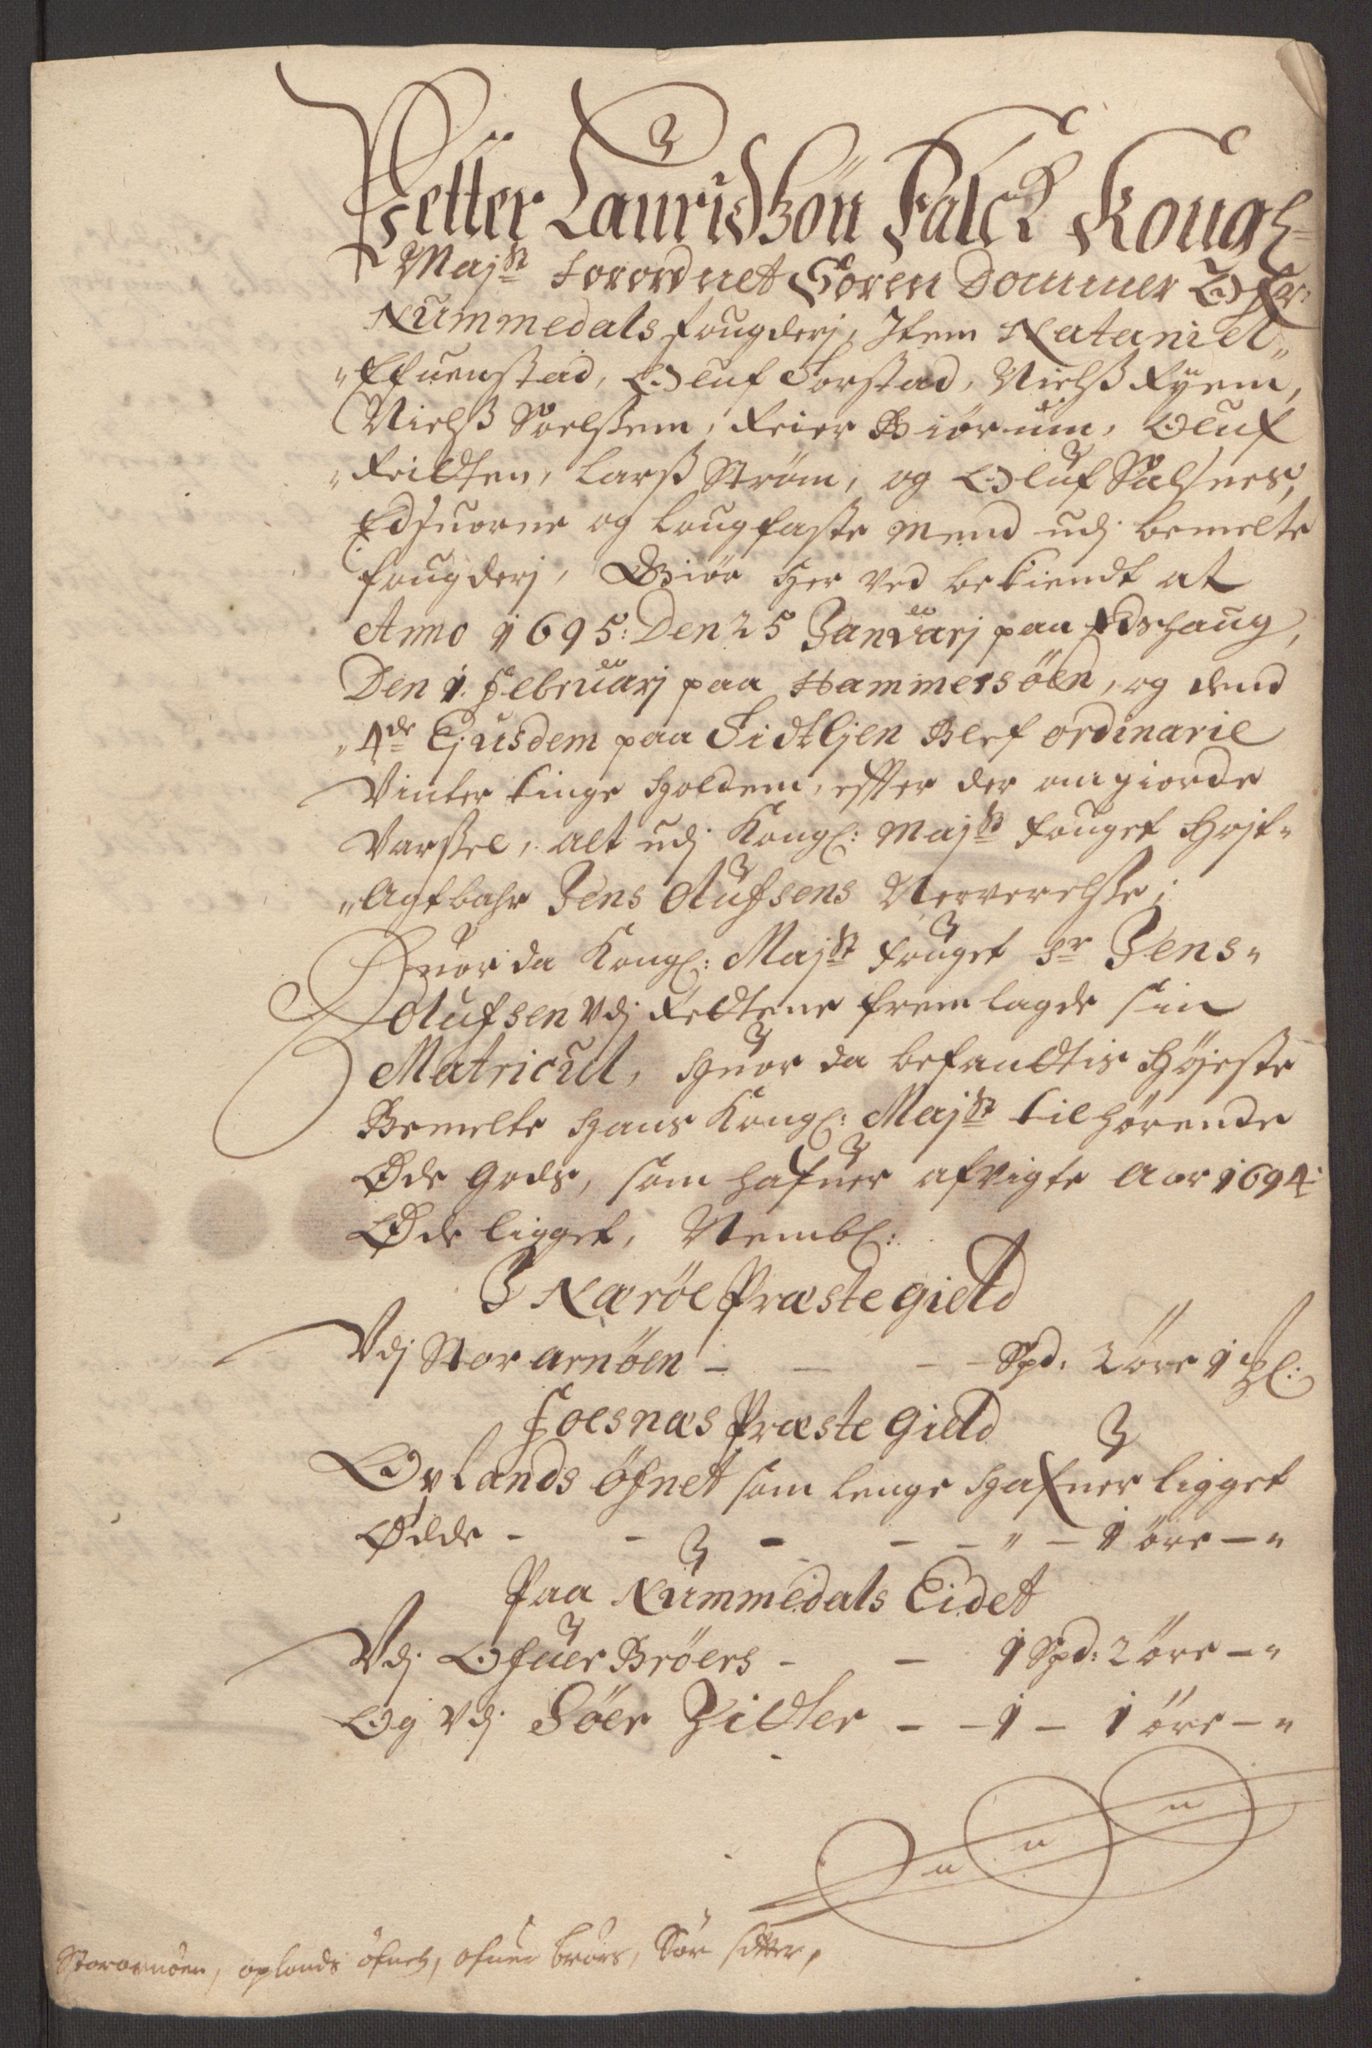 Petter Lauridtzön Falck Kongl:
Majst forordnet Soren Dommer Ofr
Nummedals fougderj, Item Nataniel
Efuenstad, Oluf Forstad, Nielß Ryem,
Nielß Soelßem, Reier Biørum, Oluf
Feilten, Larß Strøm, og Oluf Salsnes,
Edsuorne og Lougfaste Mend udj bemelte
fougderj, Giør her ved bekiendt at
Anno 1695: Den 25 Januarj paa Edshaug,
Den 1. Februarj paa Hammersöen, og dend
4de Ejusdem paa Sidtljen Blef ordinarie
Vinter tinge holdem, effter der om giorde
Varßel, alt udj Kongl: Majst fouget Højt-
Agtbahr Jens Olufsens Nerverelße;
Huor da Kongl: Majst fouget Sr Jens
Olufsen Vdj Rettene frem lagde sin
Matricul, huor da befandtis Højeste
Bemelte hans Kongl: Majst tilhørende
Øde Gods, som hafuer afvigte Aar 1694:
Øde ligget, Nembl:
I Nærøe Præstegield
Vdj Stor arnöen - - - - Spd: 2 öre 1 Ml:
Foesnæs Præste Gield
Oplands öfnet som lenge hafuer ligget
Ödde - - - - - " - 1 öre - "
Paa Nummedals Eidet
Vdj Ofuer Bröers - - 1 Spd: 2 öre - "
Og Vdj Söer Zitter - - 1 - 1 öre - "
Stor arnöen, oplands öfnet, ofuer brörs, Sör sitter,